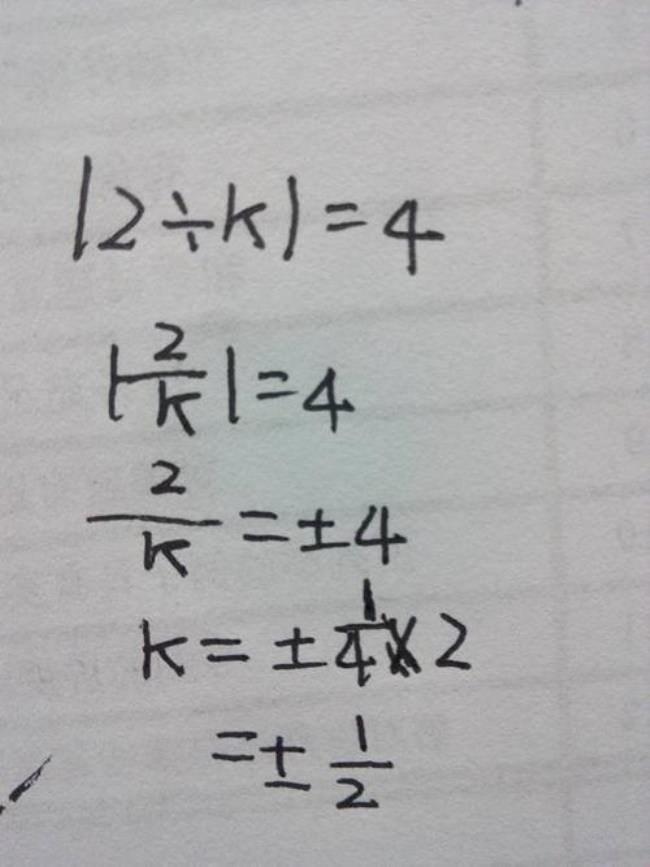 |2÷k|=4
|2/k|=4
2/k=±4
k=±1/4×2
=±1/2